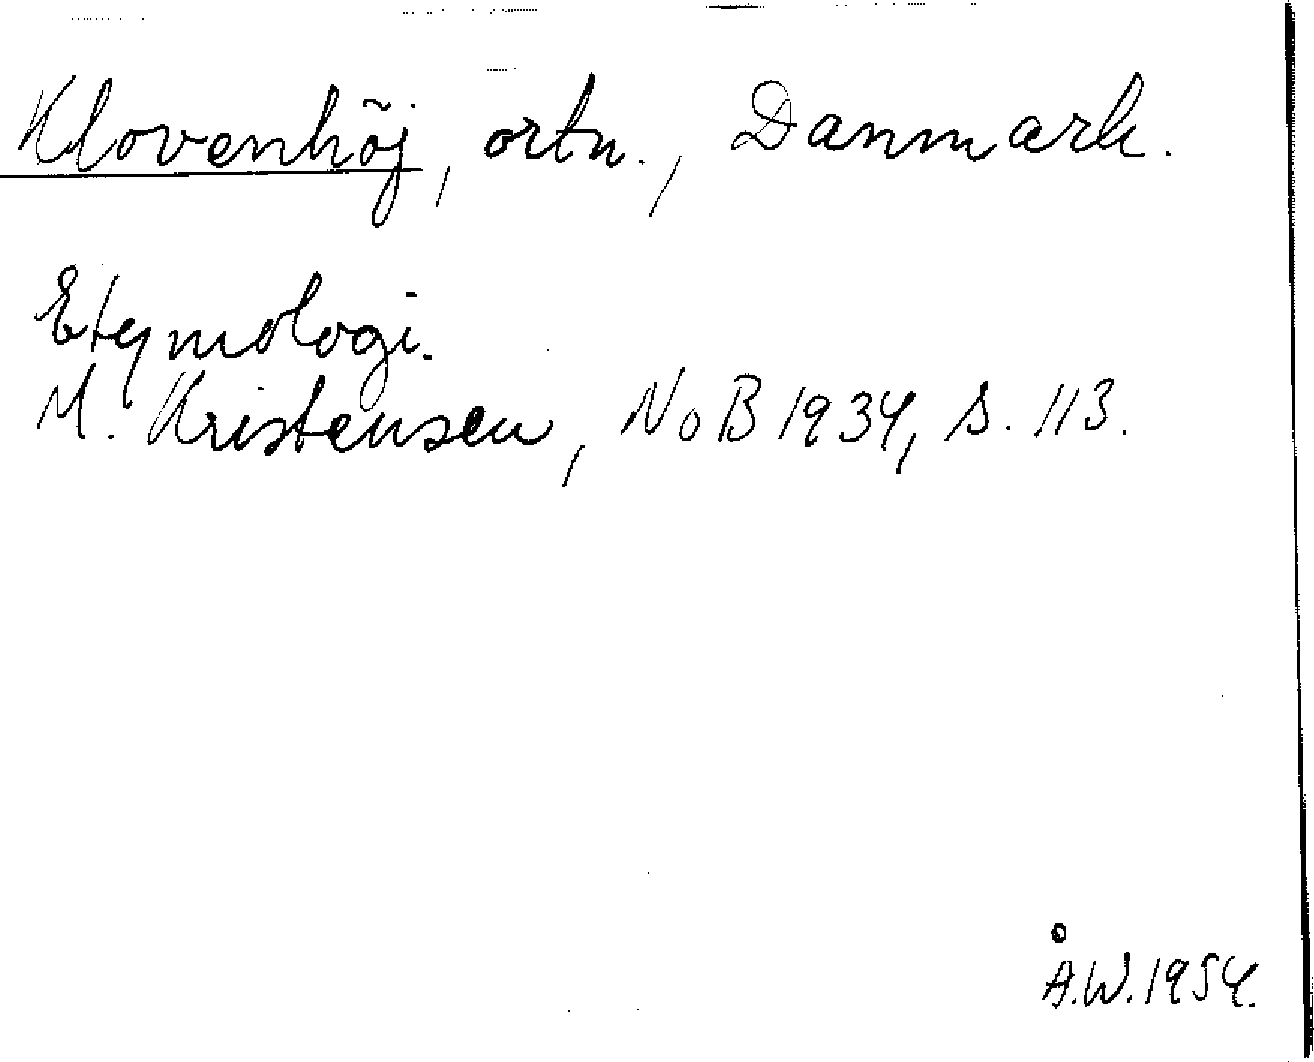 Klovenhöj, ortn., Danmark.
Etymologi.
M. Kristensen, NoB 1934, s. 113.
Å.W. 1954.